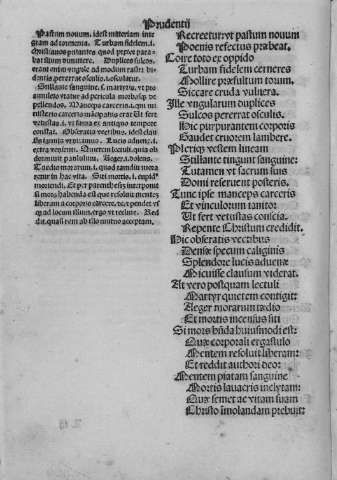 Prudentij
Pastum nouum. idest materiam inte
gram ad tormenta. Turbam fidelem. i.
christianos
bat illum dimittere. Duplices sulcos.
erant enim vngule ad modum rastri bi
dentis pererrat osculis. i. osculatur.
Stillante sanguine. s. martyris. vt pro
Manceps carceris. i. mi
nister carceris
vetustas. i. vt fama est antiquo tempore
constat. Obseratis vectibus. idest clau
Lucis aduenae. i.
extra venientis. Quietem lectuli. quia ob
dormiuit paululum. Aeger. i. dolens.
Taedio morarum. i. quod tamdiu mora
retur in hac vita. Siti mortis. i. cupidi
moriendi. Et per parenthesim interponit
si mors habenda est que resoluit mentes
liberam a corporis carcere. et reddit vt
quasi rem ab illo mutuo acceptam.
Recreetur vt pastum nouum
Poenis refectus praebeat.
Coire toto ex oppido
Turbam fidelem cerneres
Mollire praefultum torum.
Siccare cruda vulnera.
Ille vngularum duplices
Sulcos pererrat osculis.
Hic purpurantem corporis
Gaudet cruorem lambere.
Pleriq; vestem lineam
Stillante tingunt sanguine:
Tutamen vt sacrum suis
Domi reseruent posteris.
Tunc ipse manceps carceris
Et vinculorum ianitor
Ut fert vetustas conscia.
Repente Christum credidit.
Hic obseratis vectibus
Densae specum caliginis
Splendore lucis aduenae
Micuisse clausum viderat.
At vero postquam lectuli
Martyr quietem contigit:
Aeger morarum taedio
Et mortis incensus siti
Si mors hn̄da huiusmodi est:
Quae corporali ergastulo
Mentem resoluit liberam:
Et reddit authori deo:
Mentem piatam sanguine
Mortis lauacris inelytam:
Quae semet ac vitam suam
Christo īmolandam prebuit: